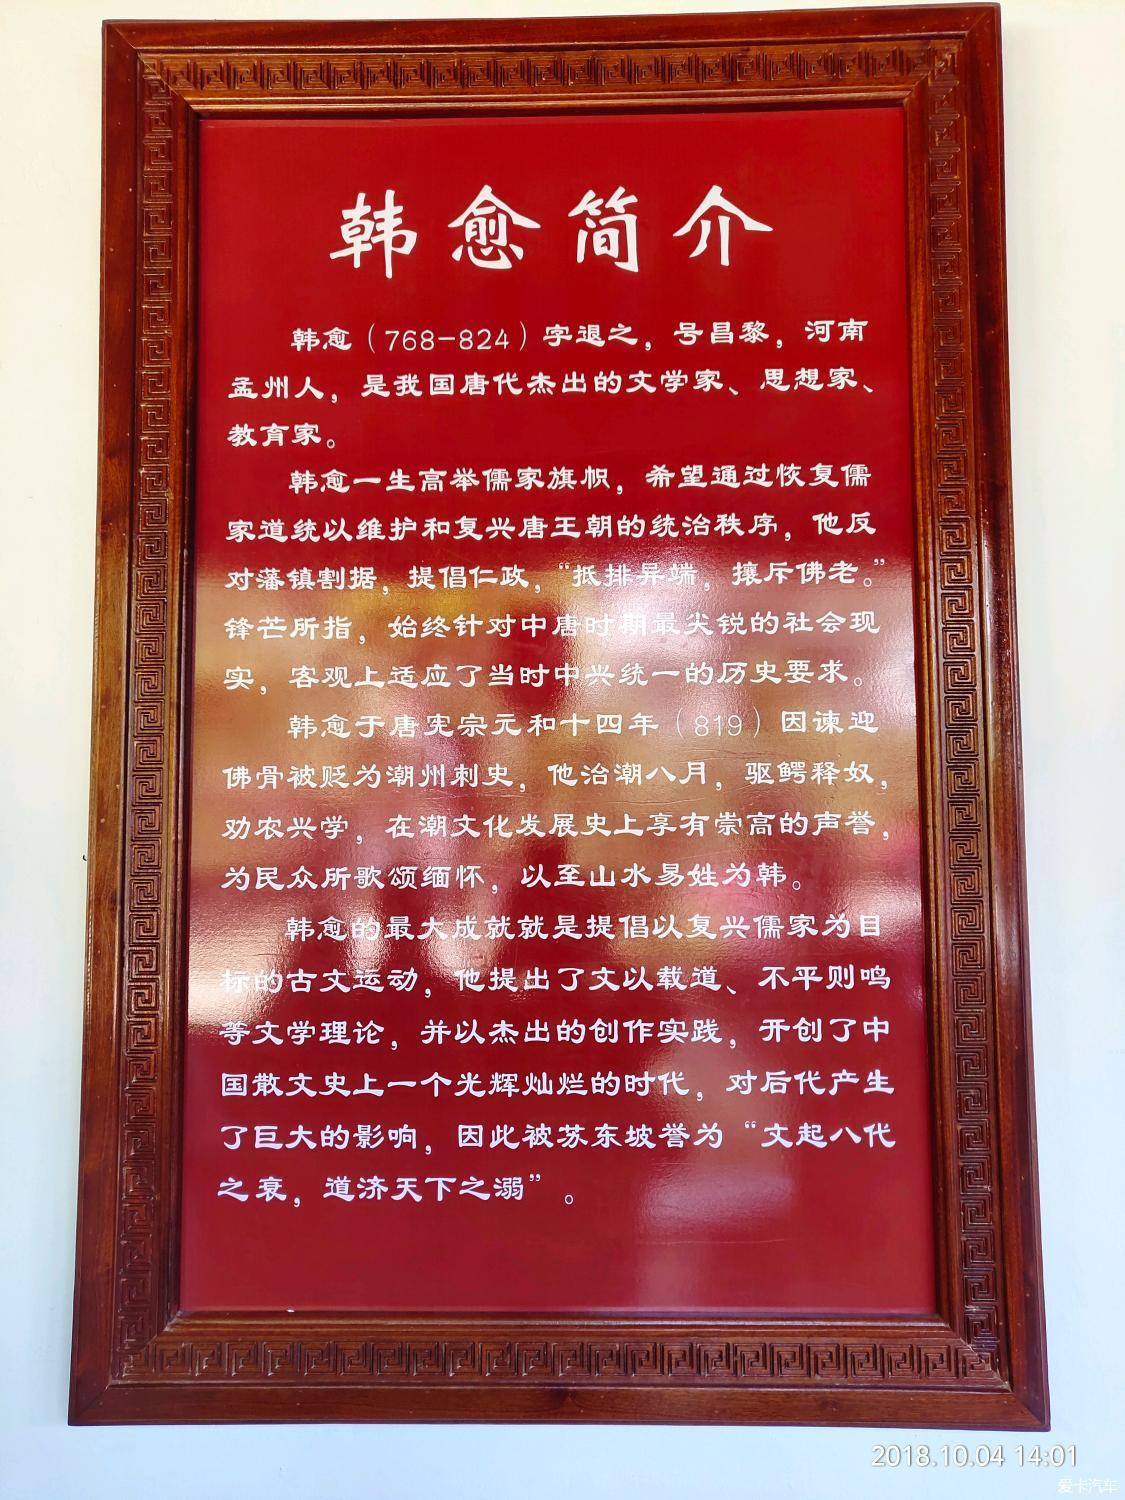 韩愈简介
韩愈（768-824）字退之，号昌黎，河南
孟州人，是我国唐代杰出的文学家、思想家、
教育家。
韩愈一生高举儒家旗帜，希望通过恢复儒
家道统以维护和复兴唐王朝的统治秩序，他反
对藩镇割据，提倡仁政，“抵排异端，攘斥佛老。”
锋芒所指，始终针对中唐时期最尖锐的社会现
实，客观上适应了当时中兴统一的历史要求。
韩愈于唐宪宗元和十四年（819）因谏迎
佛骨被贬为潮州刺史，他治潮八月，驱鳄释奴，
劝农兴学，在潮文化发展史上享有崇高的声誉，
为民众所歌颂缅怀，以至山水易姓为韩。
韩愈的最大成就就是提倡以复兴儒家为目
标的古文运动，他提出了文以载道、不平则鸣
等文学理论，并以杰出的创作实践，开创了中
国散文史上一个光辉灿烂的时代，对后代产生
了巨大的影响，因此被苏东坡誉为“文起八代
之衰，道济天下之溺”。
2018.10.04 14:01
爱卡汽车